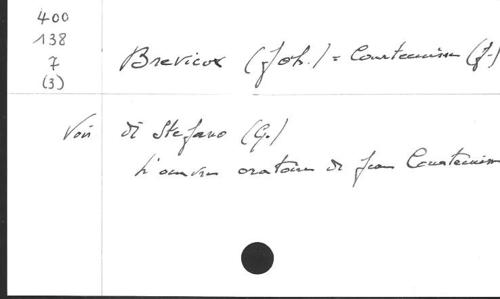 400
138
7
(3)
Brevicox (Joh.) = Courtecuisse (J.)
Voir di Stefano (G.)
L'œuvre oratoire de Jean Courtecuisse